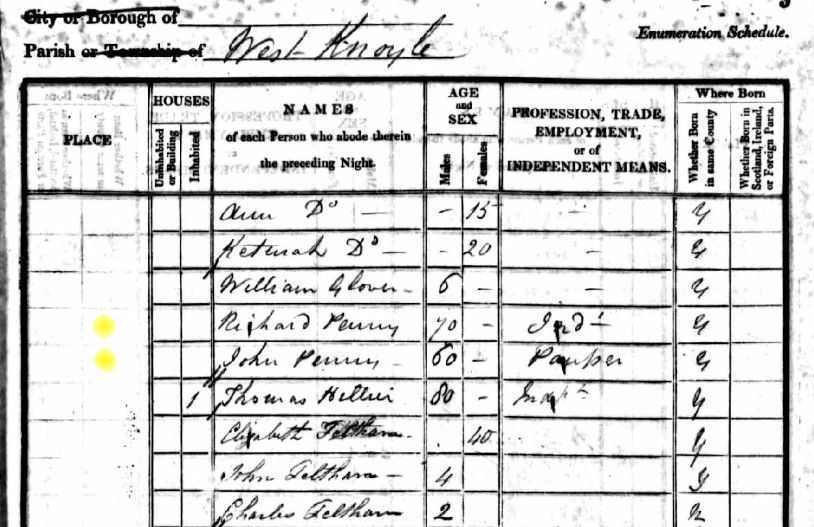 City or Borough of
Parish or Township of West Knoyle
Enumeration Schedule.
PLACE
HOUSES
Uninhabited or Building
Inhabited
NAMES
of each Person who abode therein
the preceding Night.
AGE
and
SEX
Males
Females
PROFESSION, TRADE,
EMPLOYMENT,
or of
INDEPENDENT MEANS.
Where Born
Whether Born in same County
Whether Born in Scotland, Ireland, or Foreign Parts.
Ann Do — - 15 - y
Keturah Do — - 20 - y
William Glover - 6 - - y
Richard Penny 70 - Ind t y
John Penny - 60 - Pauper y
1 Thomas Hellier 80 - Indpt y
Elizabeth Feltham - . 40 y
John Feltham - 4 y
Charles Feltham 2 n